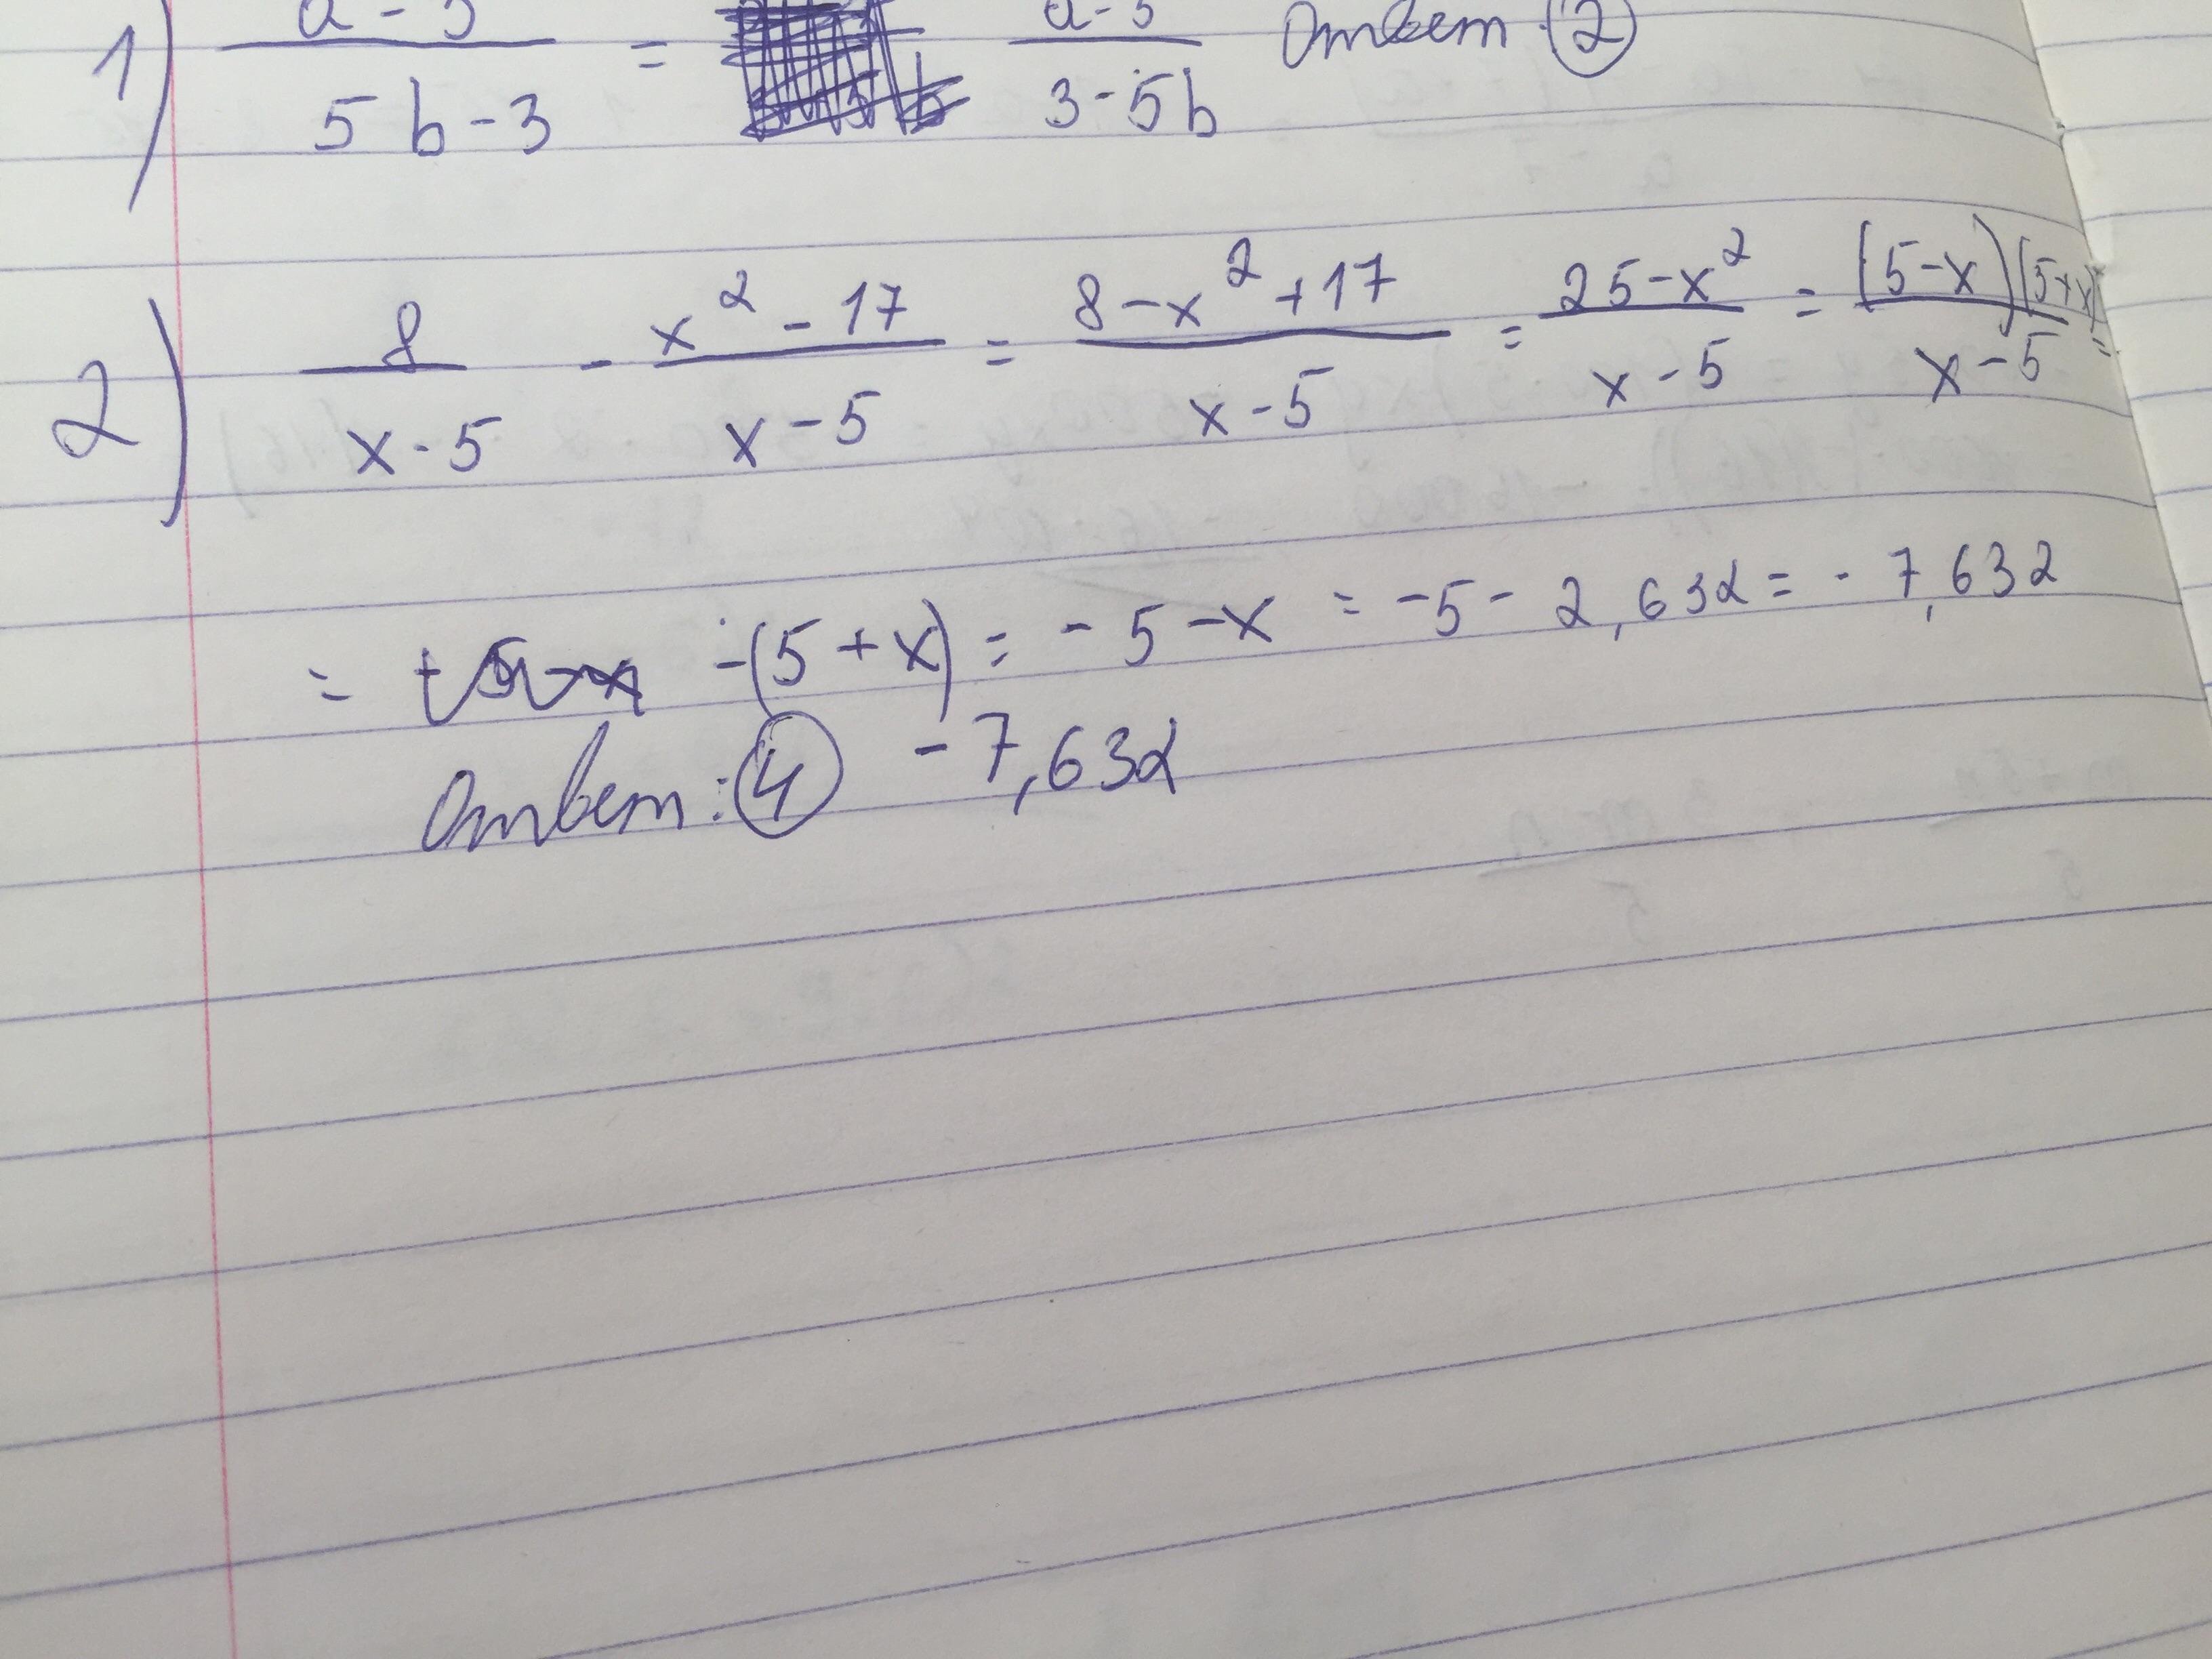 1) a-5/5b-3 = a-5/3-5b Ответ: ②
2) 8/x-5 - x²-17/x-5 = 8-x²+17/x-5 = 25-x²/x-5 = (5-x)(5+x)/x-5 =
= -(5+x) = -5-x = -5-2,632 = -7,632
Ответ: ④ -7,632